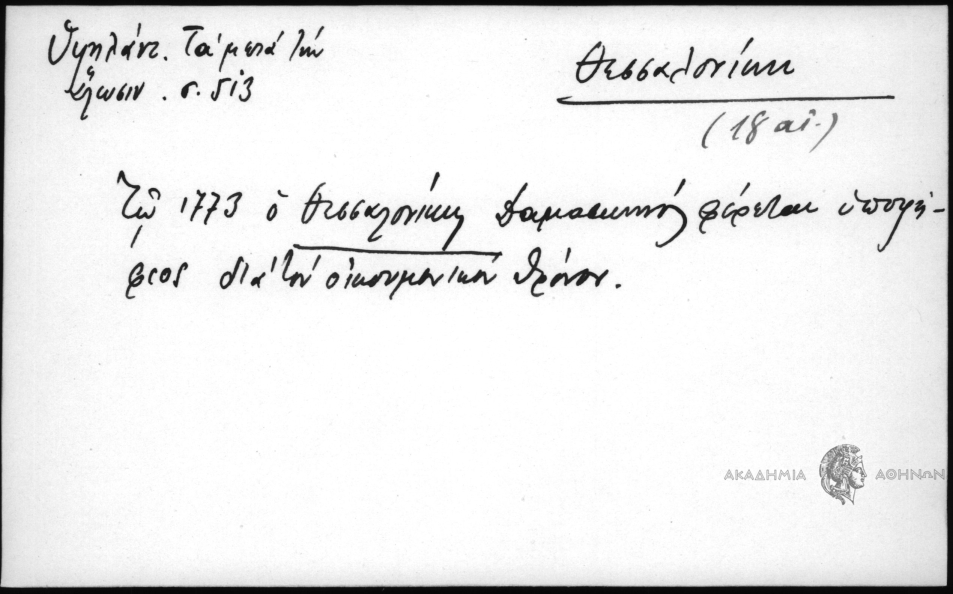 Ὑψηλάντ. Τὰ μετὰ τὴν
ἅλωσιν. σ. 513
Θεσσαλονίκη
(18 αἰ.)
Τῷ 1773 ὁ Θεσσαλονίκης Δαμασκηνὸς φέρεται ὑποψή-
φιος διὰ τὸν οἰκουμενικὸν θρόνον.
ΑΚΑΔΗΜΙΑ ΑΘΗΝΩΝ